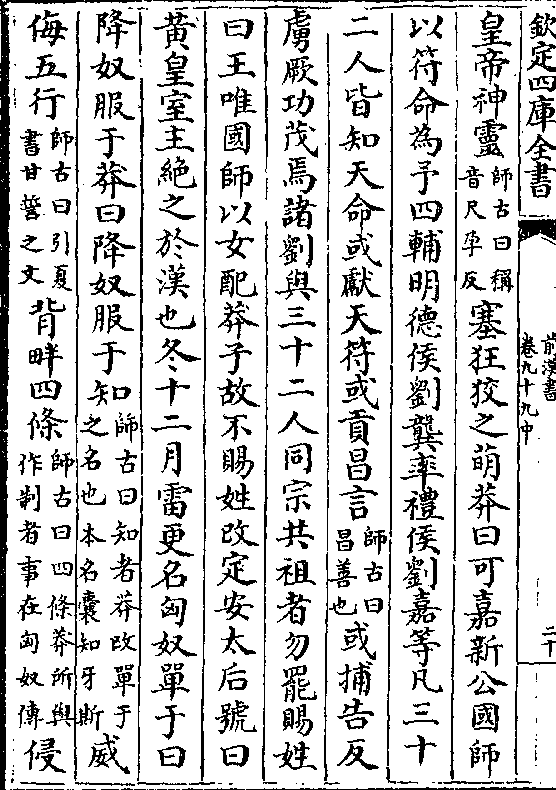 欽定四庫全書
前漢書
卷九十九中
二十
皇帝神靈師古曰稱音尺孕反塞狂狡之萌莽曰可嘉新公國師
以符命為予四輔明德侯劉龔率禮侯劉嘉等凡三十
二人皆知天命或獻天符或貢昌言師古曰昌善也或捕告反
虜厥功茂焉諸劉與三十二人同宗共祖者勿罷賜姓
曰王唯國師以女配莽子故不賜姓改定安太后號曰
黃皇室主絶之於漢也冬十二月雷更名匈奴單于曰
降奴服于莽曰降奴服于知師古曰知者莽改單于之名也本名囊知牙斯威
侮五行師古曰引夏書甘誓之文背畔四條師古曰四條莽所與作制者事在匈奴傳侵